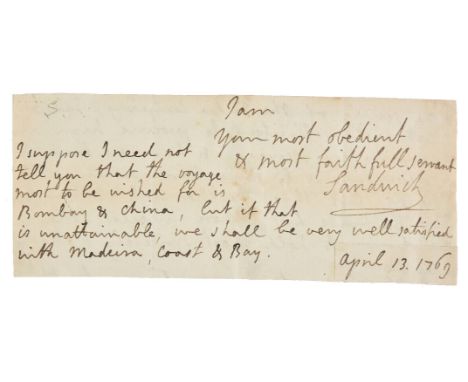 I am
Your most obedient
& most faithfull servant
Sandwich
I suppose I need not
tell you that the voyage
most to be wished for is
Bombay & China, but if that
is unattainable, we shall be very well satisfied
with Madeira, Coast & Bay.
April 13. 1769